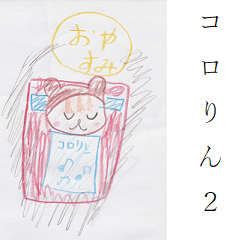 おや
すみ
コロりん
コロりん2